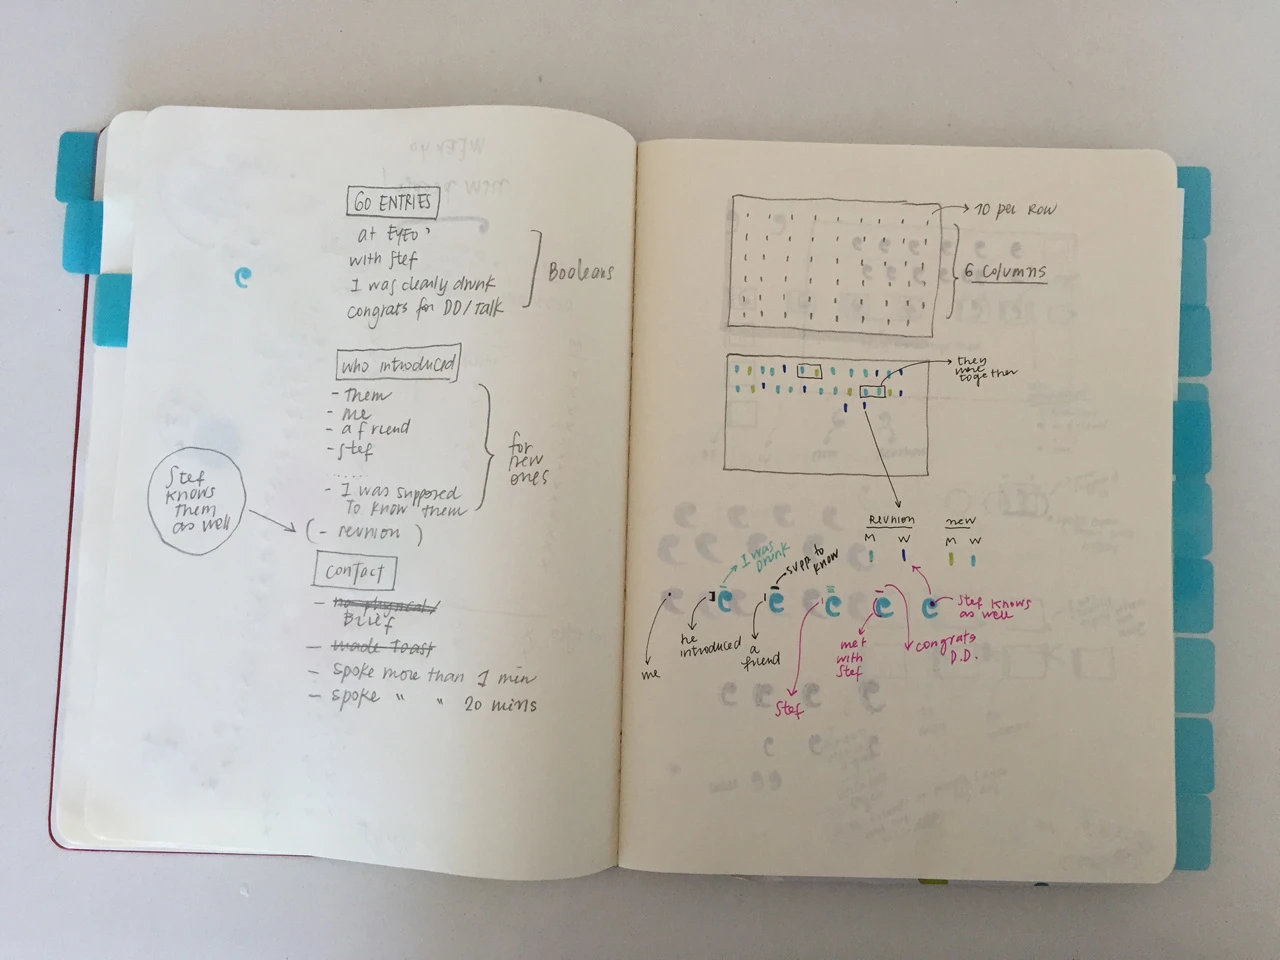 60 ENTRIES
at EYEO'
with stef
I was clearly drunk
congrats for DD/Talk
Booleans
who introduced
- Them
- me
- a friend
- stef
......
- I was supposed
To know them
(- reunion )
for
new
ones
Stef
knows
them
as well
contact
- no physical/
Brief
- made Toast
- spoke more than 1 min
- spoke " " 20 mins
10 per Row
6 columns
they
were
together
Reunion
M W
new
M W
I was
Drunk
supp to
know
me
he
introduced
a
friend
Stef
met
with
Stef
congrats
D.D.
Stef knows
as well